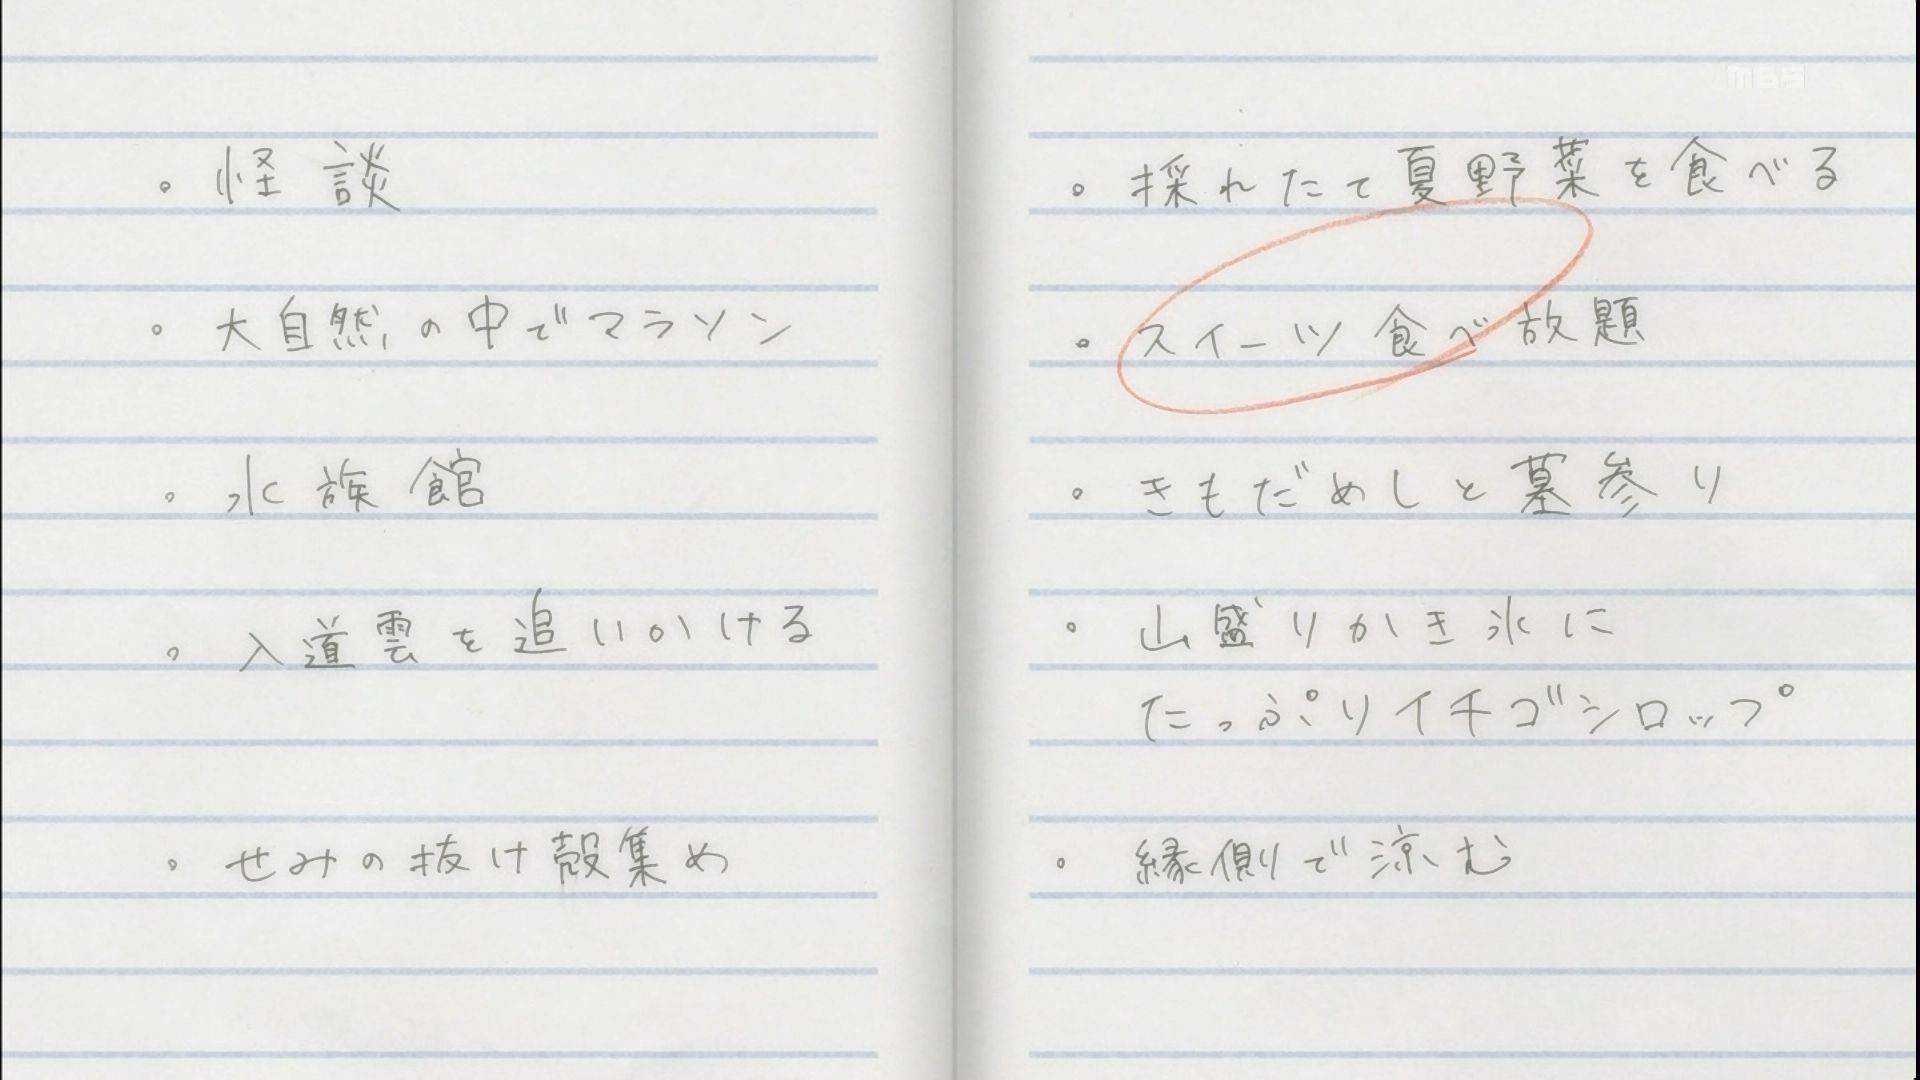 ・怪談
・大自然の中でマラソン
・水族館
・入道雲を追いかける
・せみの抜け殻集め
MBS
・採れたて夏野菜を食べる
・スイーツ食べ放題
・きもだめしと墓参り
・山盛りかき氷に
たっぷりイチゴシロップ
・縁側で涼む